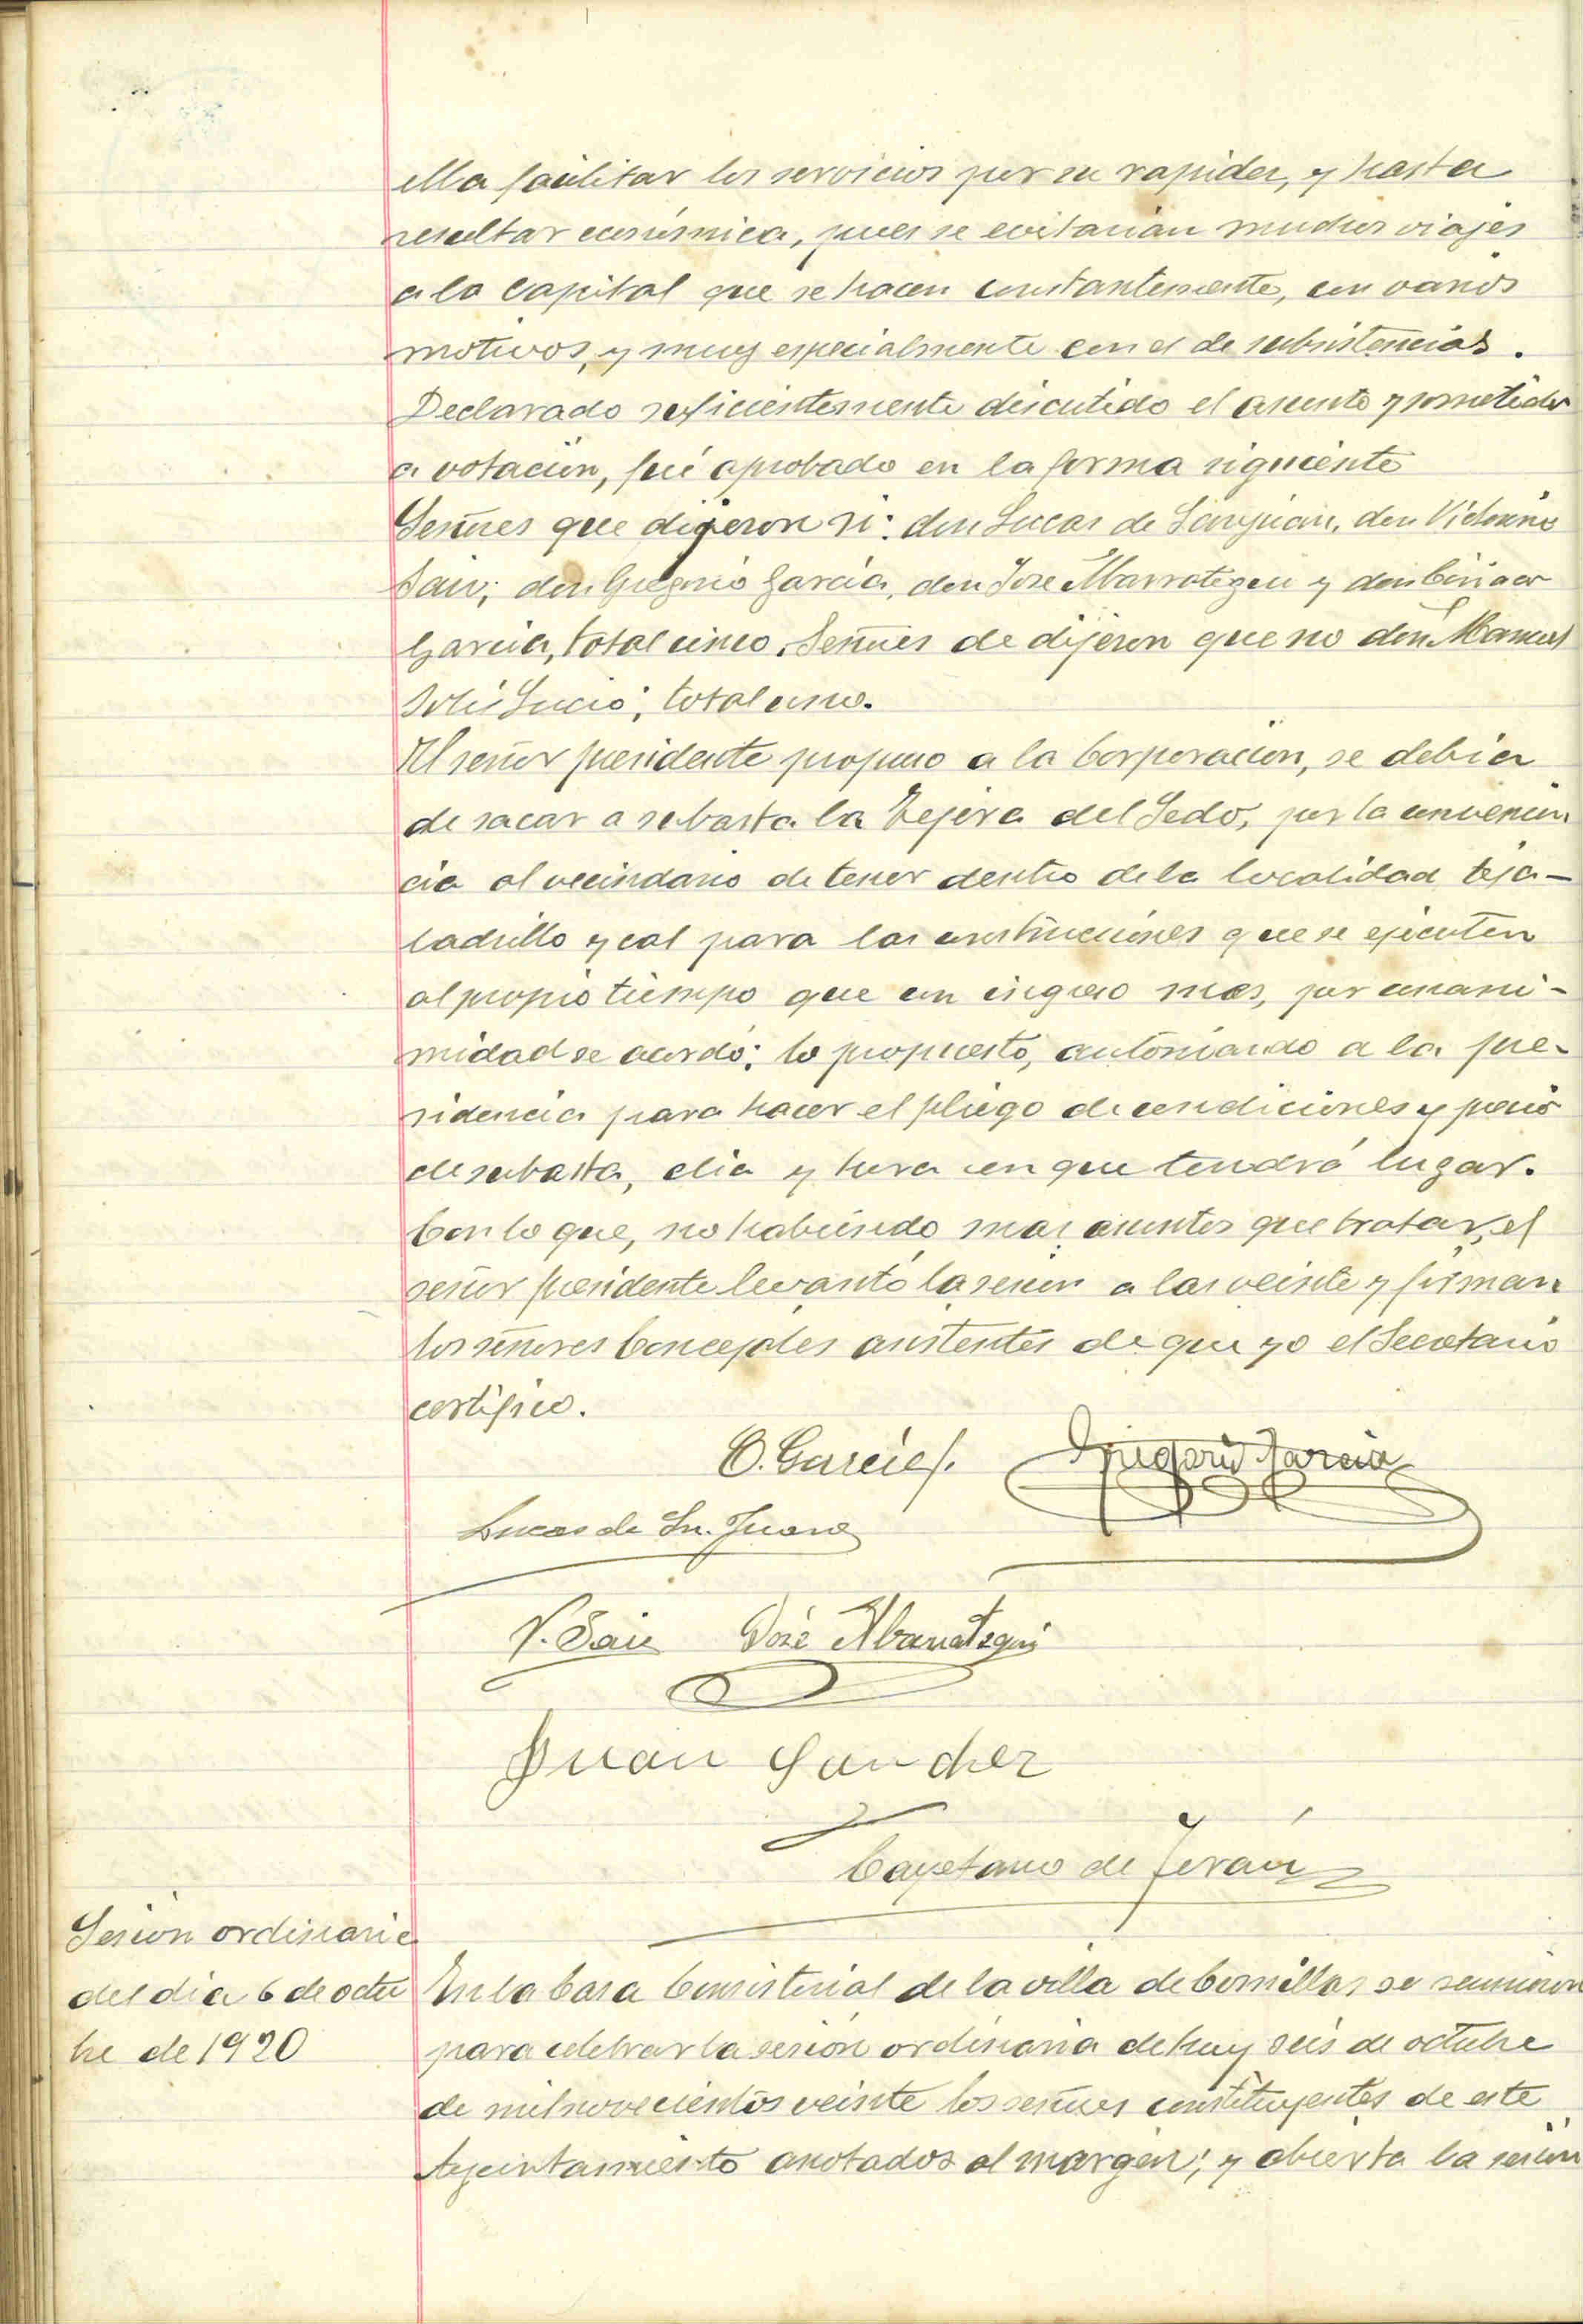 ella facilitar los servicios por su rapidez, y hasta
resultar económica, pues se evitarian muchos viajes
a la Capital que se hacen constantemente, con varios
motivos, y muy especialmente con el de subsistencias.
Declarado suficientemente discutido el asunto y sometido
a votación, fué aprobado en la forma siguiente
Señores que digeron si: don Lucas de Sanjuan, don Victorino
Saiz; don Gregorio Garcia, don Jose Abarrategui y don
Garcia, total cinco. Señores de dijeron que no don Manuel
Solis Lucio; total uno.
El señor presidente propuso a la Corporación, se debia
de sacar a subasta la Tejera del Sedo, por la convenien
cia al vecindario de tener dentro de la localidad teja-
ladrillo y cal para las construcciones que se ejecuten
al propio tiempo que un ingreso mas, por unani-
midad se acordó: lo propuesto, autorizando a la pre-
sidencia para hacer el pliego de condiciones y precio
de subasta, dia y hora en que tendrá lugar.
Con lo que, no habiendo mas asuntos que tratar, el
señor presidente levantó la sesion a las veinte y firman
los señores Concejales asistentes de que yo el Secretario
certifico.
C. Garcia. Gregorio Garcia
Lucas de Sn. Juan
V. Saiz José Abarrategui
Juan Sanchez
Cayetano de Terán
Sesion ordinaria
del dia 6 de octu
bre de 1920
En la Casa Consistorial de la villa de Comillas se reunieron
para celebrar la sesión ordinaria de hoy seis de octubre
de mil novecientos veinte los señores constituyentes de este
Ayuntamiento anotados al margen; y abierta la sesion